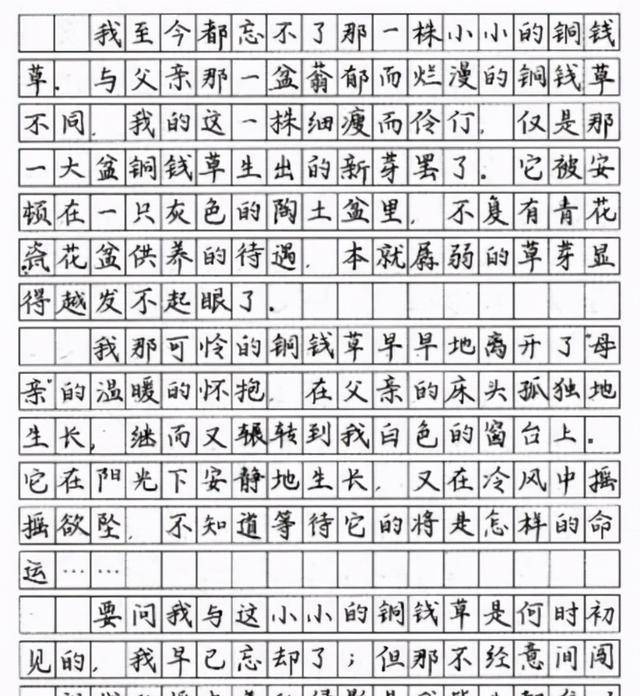 我至今都忘不了那一株小小的铜钱
草．与父亲那一盆蓊郁而烂漫的铜钱草
不同，我的这一株细瘦而伶仃，仅是那
一大盆铜钱草生出的新芽罢了．它被安
顿在一只灰色的陶土盆里，不复有青花
瓷花盆供养的待遇，本就孱弱的草芽显
得越发不起眼了．
我那可怜的铜钱草早早地离开了“母
亲”的温暖的怀抱，在父亲的床头孤独地
生长，继而又辗转到我白色的窗台上。
它在阳光下安静地生长，又在冷风中摇
摇欲坠，不知道等待它的将是怎样的命
运……
要问我与这小小的铜钱草是何时初
见的，我早已忘却了；但那不经意间闯